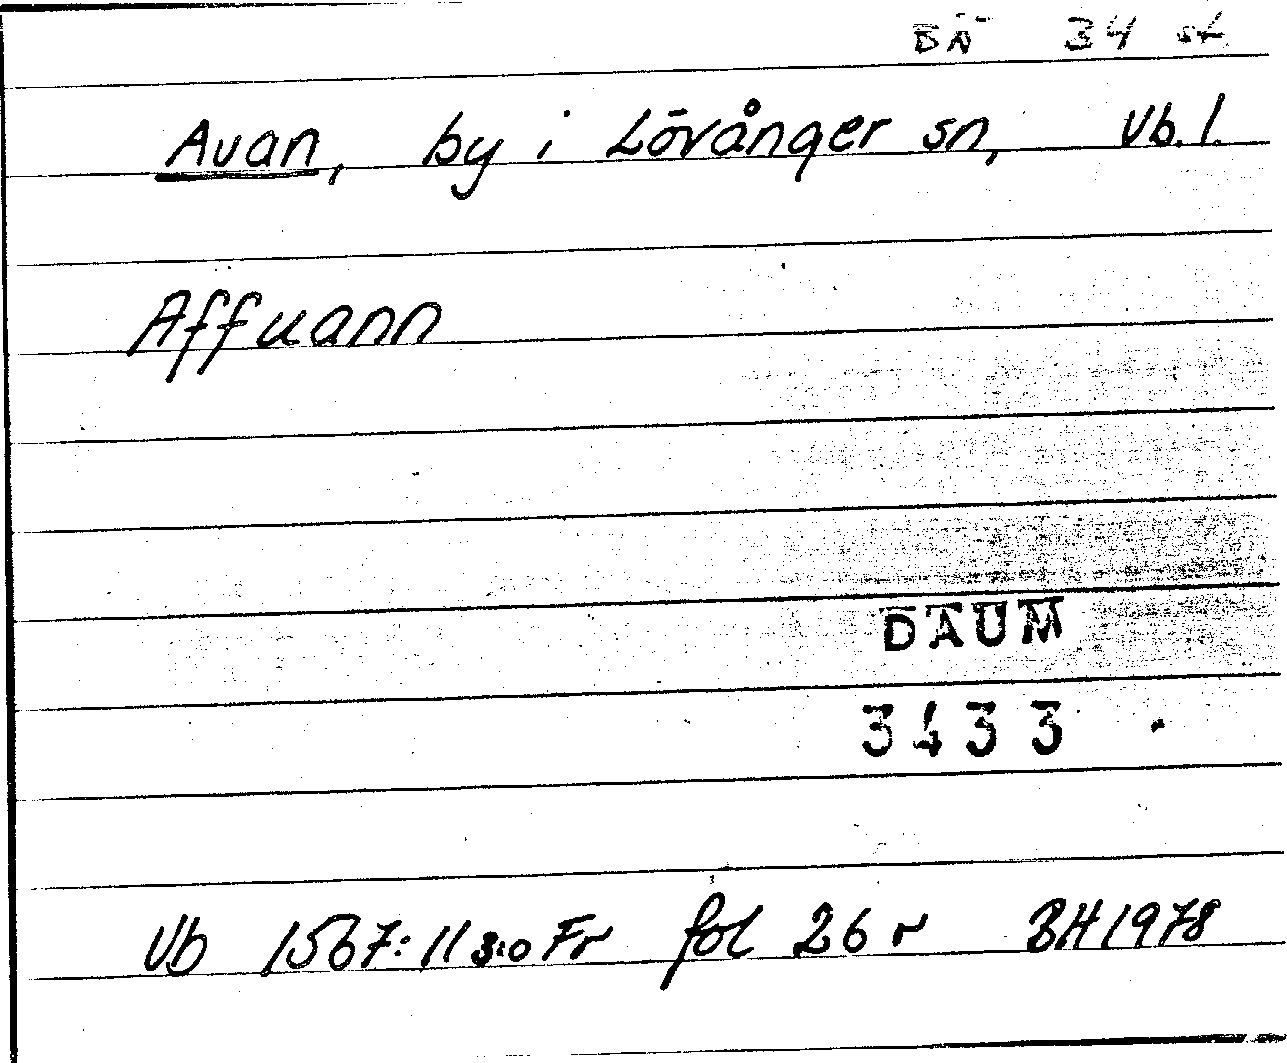 DÄ 34 st
Avan, by i Lövånger sn, Vb. l.
Affuann
DAUM
3433
Vb 1567:11 3:o Fr fol 26 r BH 1978